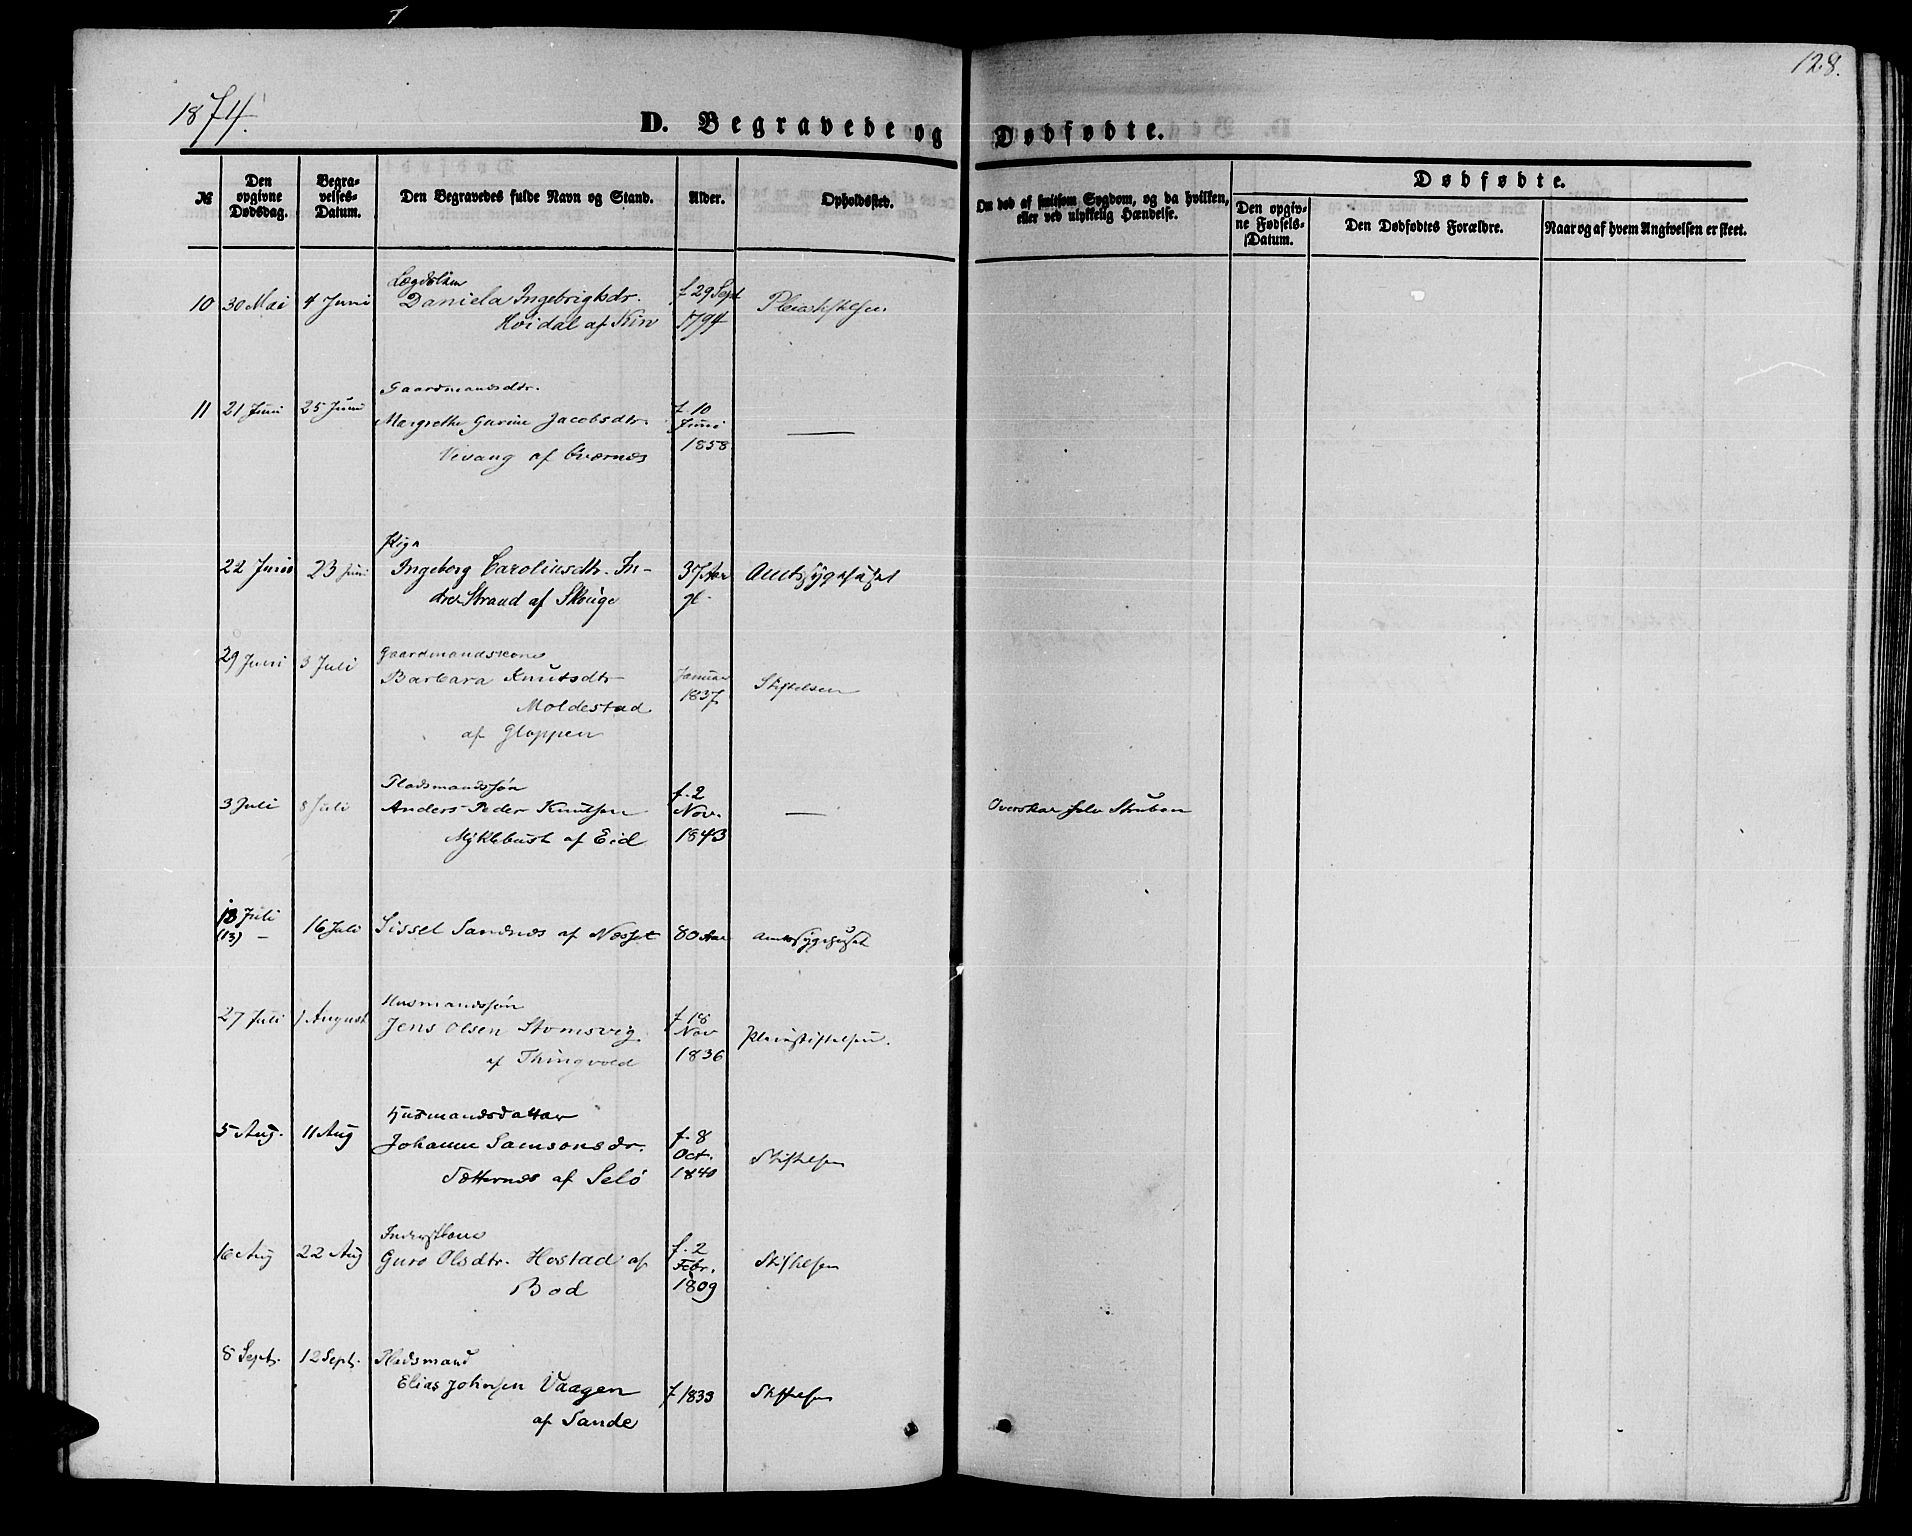 128.
1874.
D. Begravede og Dødfødte.
№
Den opgivne Dødsdag.
Begravelses-Datum.
Den Begravedes fulde Navn og Stand.
Alder.
Opholdssted.
Om død af smitsom Sygdom, og da hvilken, eller ved ulykkelig Hændelse.
Dødfødte.
Den opgivne Fødsels-Datum.
Den Dødfødtes Forældre.
Naar og af hvem Angivelsen er skeet.
Lægdslem
10 30 Mai 4 Juni Daniela Ingebrigtsdr. f 29 Sept Pleiestiftelsen
Hoidal af Kin 1794
Gaardmandsdtr.
11 21 Juni 25 Juni Margrethe Gurine Jacobsdtr. f. 10 Juni 1858 —
Vevang af Qværnæs
Pige
22 Juni 23 Juni Ingeborg Carolinedtr. In- 37 Aar Amtssygehuset
dre Strand af gl.
29 Juni 3 Juli Gaardmandskone
Barbara Knutsdtr Januar 1837 Stiftelsen
Moldestad
af Gloppen
Pladsmandssøn
3 Juli 8 Juli Anders Peder Knutsen f. 2 Nov. 1843 — Overskar selv Struben
Myklebust af Eid
13 Juli
(13) – 16 Juli Sissel Sandnæs af Næsset 80 Aar Amtssygehuset
Husmandssøn
27 Juli 1 August Jens Olsen Stomsvig f 18 Nov 1836 Pleiestiftelsen.
af Thingvold
Husmandsdatter
5 Aug. 11 Aug Johanne Samsonsdr. f. 8 Oct. 1840 Stiftelsen
Sætternes af Selø
Inderstkone
16 Aug 22 Aug Guro Olsdtr. Hostad af f. 2 Febr. 1809 Stiftelsen
Bod
8 Sept. 12 Sept. Pladsmand
Elias Johnsen Vaagen f 1833 Stiftelsen
af Sande